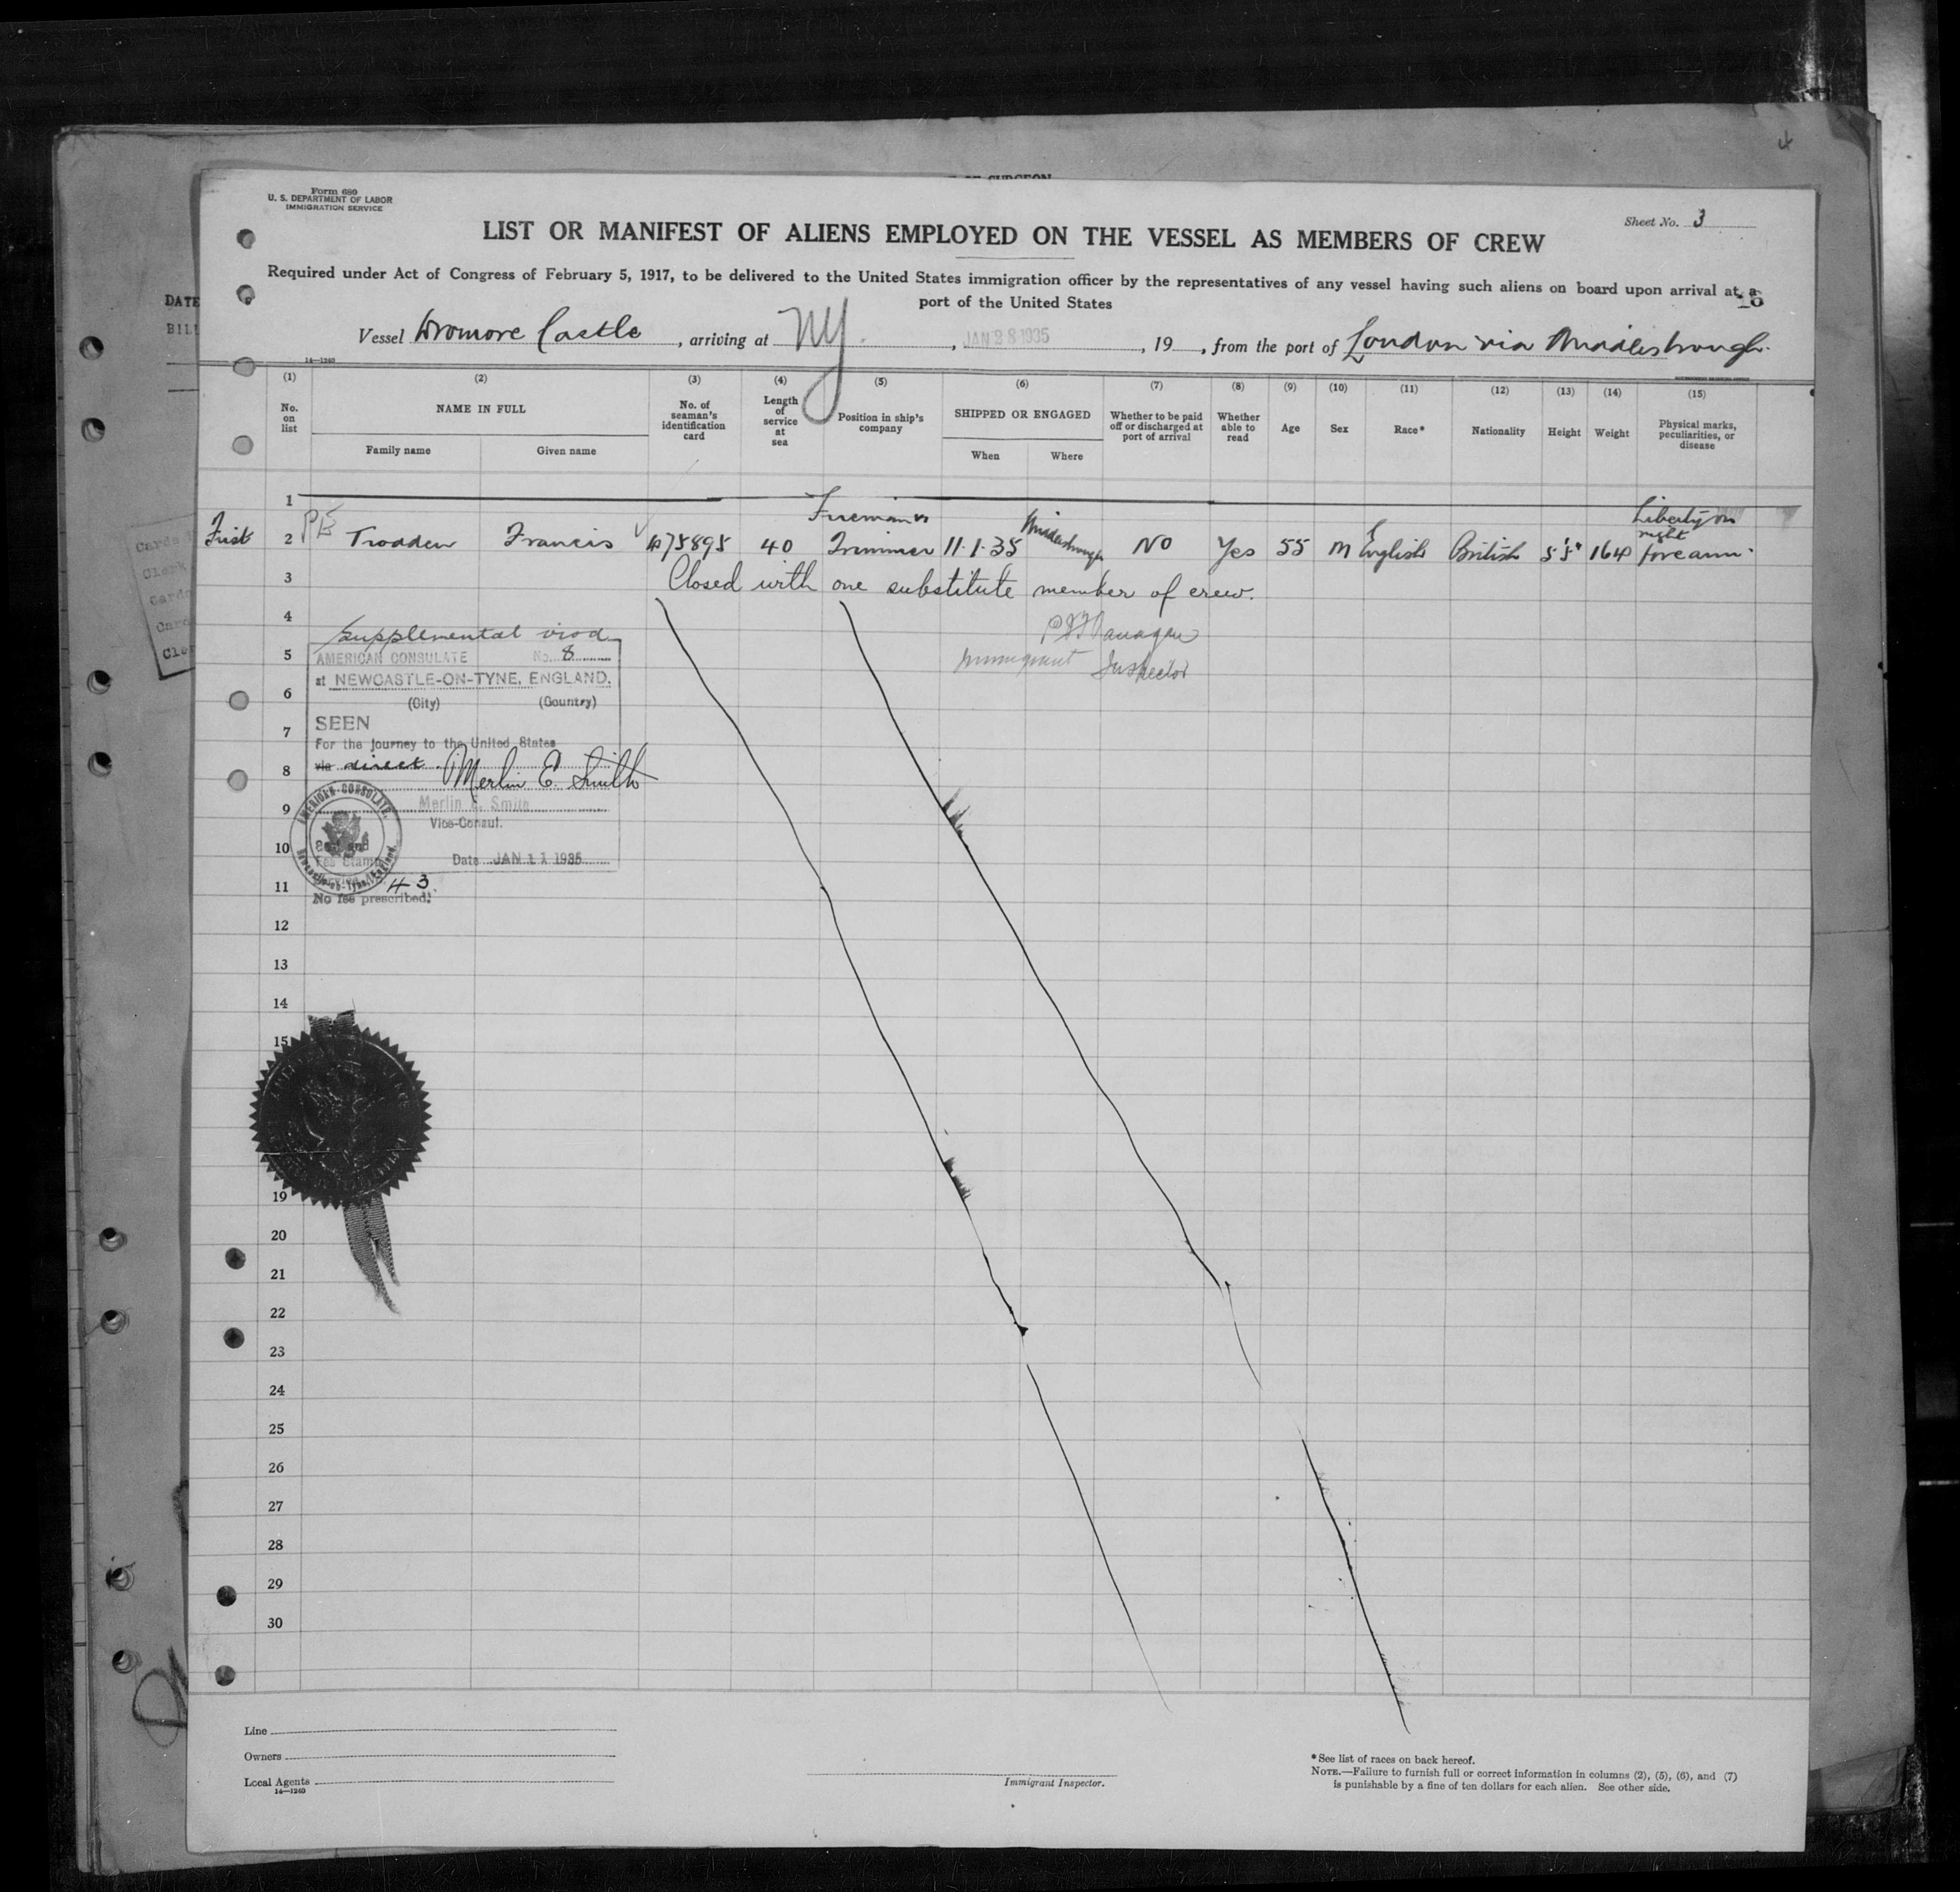 Form 680
U. S. DEPARTMENT OF LABOR
IMMIGRATION SERVICE
Sheet No. 3
LIST OR MANIFEST OF ALIENS EMPLOYED ON THE VESSEL AS MEMBERS OF CREW
Required under Act of Congress of February 5, 1917, to be delivered to the United States immigration officer by the representatives of any vessel having such aliens on board upon arrival at a
port of the United States
Vessel Dromore Castle, arriving at NY., JAN 28 1935, 19, from the port of London via Middlesbrough.
14—1240
(1) (2) (3) (4) (5) (6) (7) (8) (9) (10) (11) (12) (13) (14) (15)
No. on list
NAME IN FULL
Family name
Given name
No. of seaman's identification card
Length of service at sea
Position in ship's company
SHIPPED OR ENGAGED
When
Where
Whether to be paid off or discharged at port of arrival
Whether able to read
Age
Sex
Race*
Nationality
Height
Weight
Physical marks, peculiarities, or disease
1
First 2 PE Trodden Francis 475895 40 Fireman & Trimmer 11.1.35 Middlesbrough NO Yes 55 M English British 5'5" 164 Liberty on right forearm.
3 Closed with one substitute member of crew.
4
Immigrant Inspector
supplemental visa
AMERICAN CONSULATE No. 8
at NEWCASTLE-ON-TYNE, ENGLAND.
(City) (Country)
SEEN
For the journey to the United States
via direct.
Merlin E. Smith
Merlin E. Smith
Vice-Consul.
AMERICAN CONSULATE
Newcastle-on-Tyne, England
Seal and
Fee Stamp
Date JAN 11 1935
43
No fee prescribed.
5
6
7
8
9
10
11
12
13
14
15
19
20
21
22
23
24
25
26
27
28
29
30
Line
Owners
Local Agents
14—1240
Immigrant Inspector.
*See list of races on back hereof.
NOTE.—Failure to furnish full or correct information in columns (2), (5), (6), and (7)
is punishable by a fine of ten dollars for each alien. See other side.
DATE
BILL
Cards
Clerk
Cards
Card
Cler